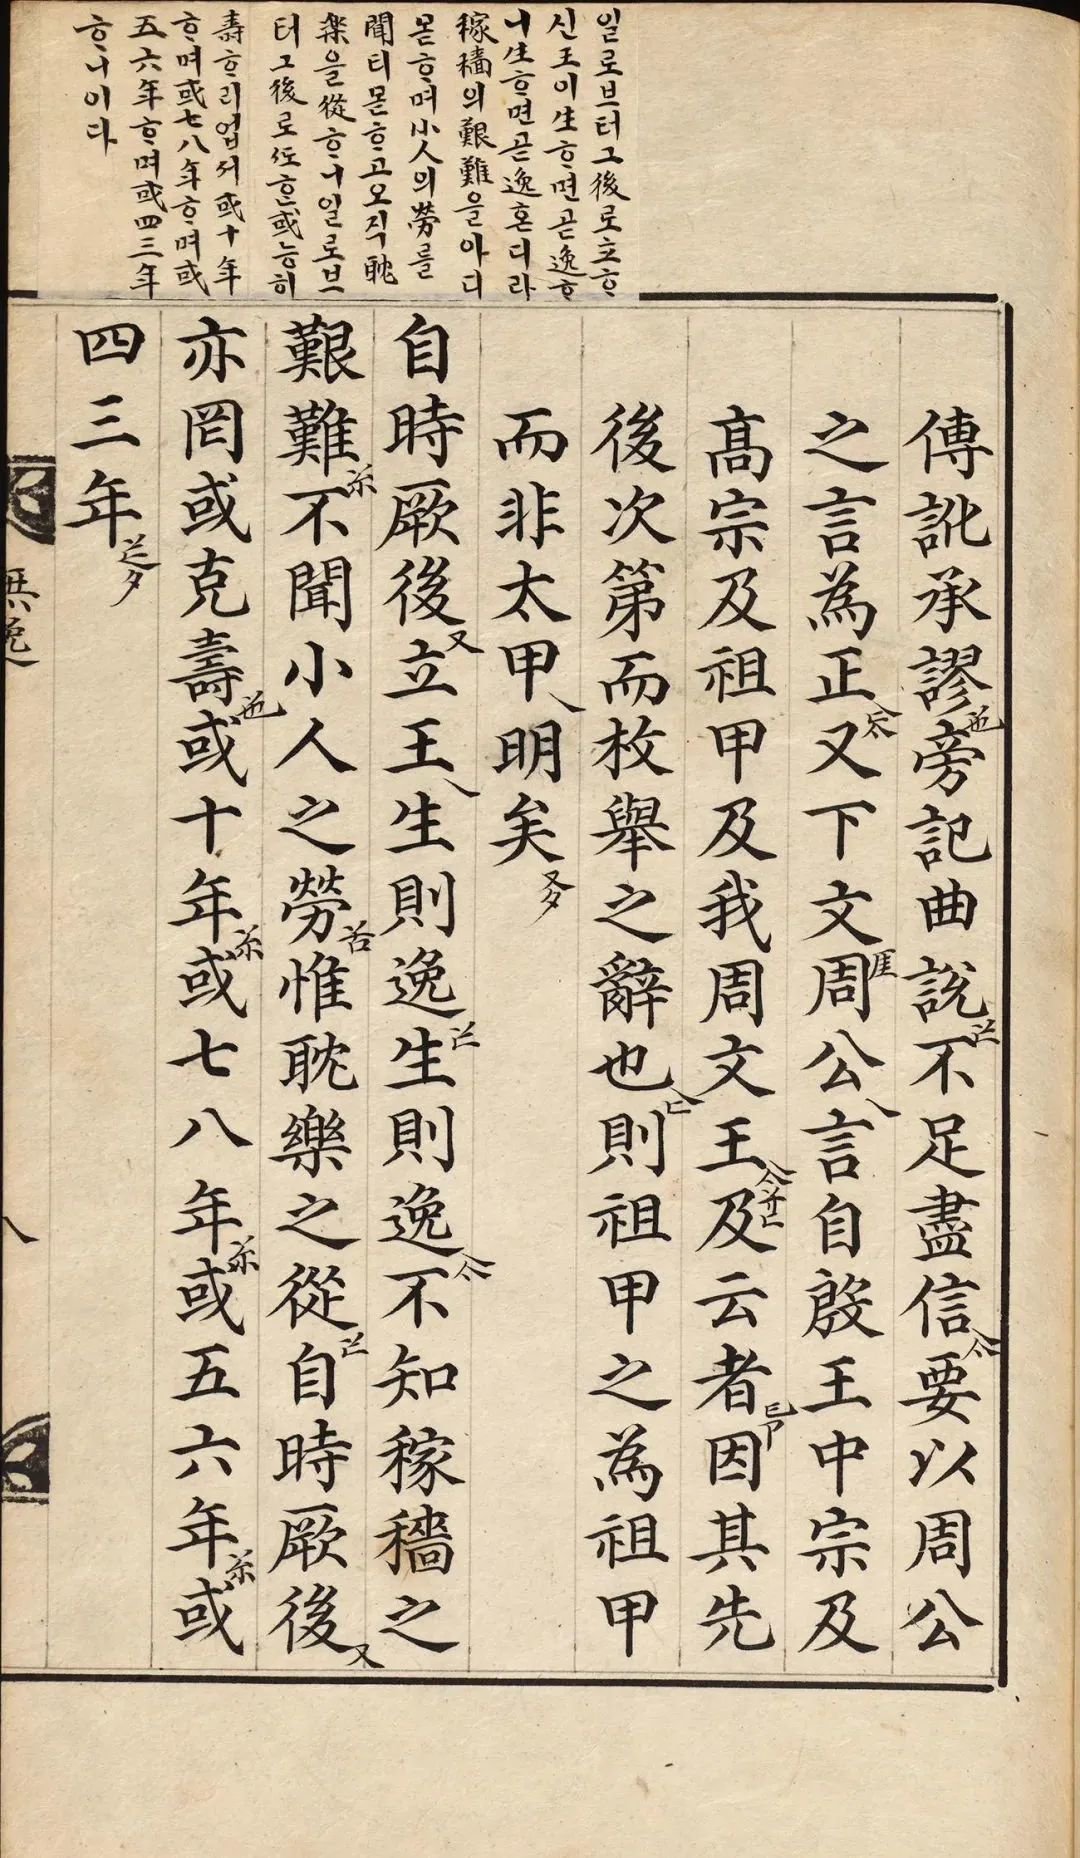 일로브터그後로立ᄒᆞ
신王이生ᄒᆞ면곧逸ᄒᆞ
니生ᄒᆞ면곧逸혼디라
稼穡의艱難을아디
몯ᄒᆞ며小人의勞를
聞티몯ᄒᆞ고오직耽
樂을從ᄒᆞ니일로브
터그後로ᄯᅩᄒᆞᆫ或능히
壽ᄒᆞ리업서或十年
ᄒᆞ며或七八年ᄒᆞ며或
五六年ᄒᆞ며或四三年
ᄒᆞ니이다
傳訛承謬旁記曲說不足盡信要以周公
之言為正又下文周公言自殷王中宗及
高宗及祖甲及我周文王及云者因其先
後次第而枚舉之辭也則祖甲之為祖甲
而非太甲明矣
自時厥後立王生則逸生則逸不知稼穡之
艱難不聞小人之勞惟耽樂之從自時厥後
亦罔或克壽或十年或七八年或五六年或
四三年
無逸
八